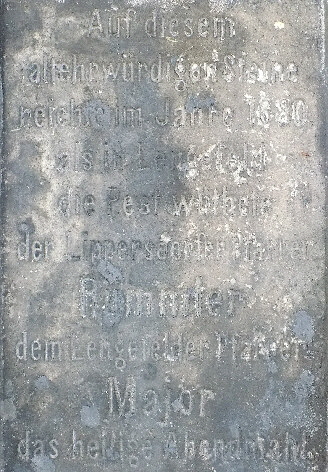 Auf diesem
altehrwürdigen Steine
reichte im Jahre 1680
als in Lengefeld
die Pest wüthete
der Lippersdorfer Pfarrer
dem Lengefelder Pfarrer
Major
das heilige Abendmahl